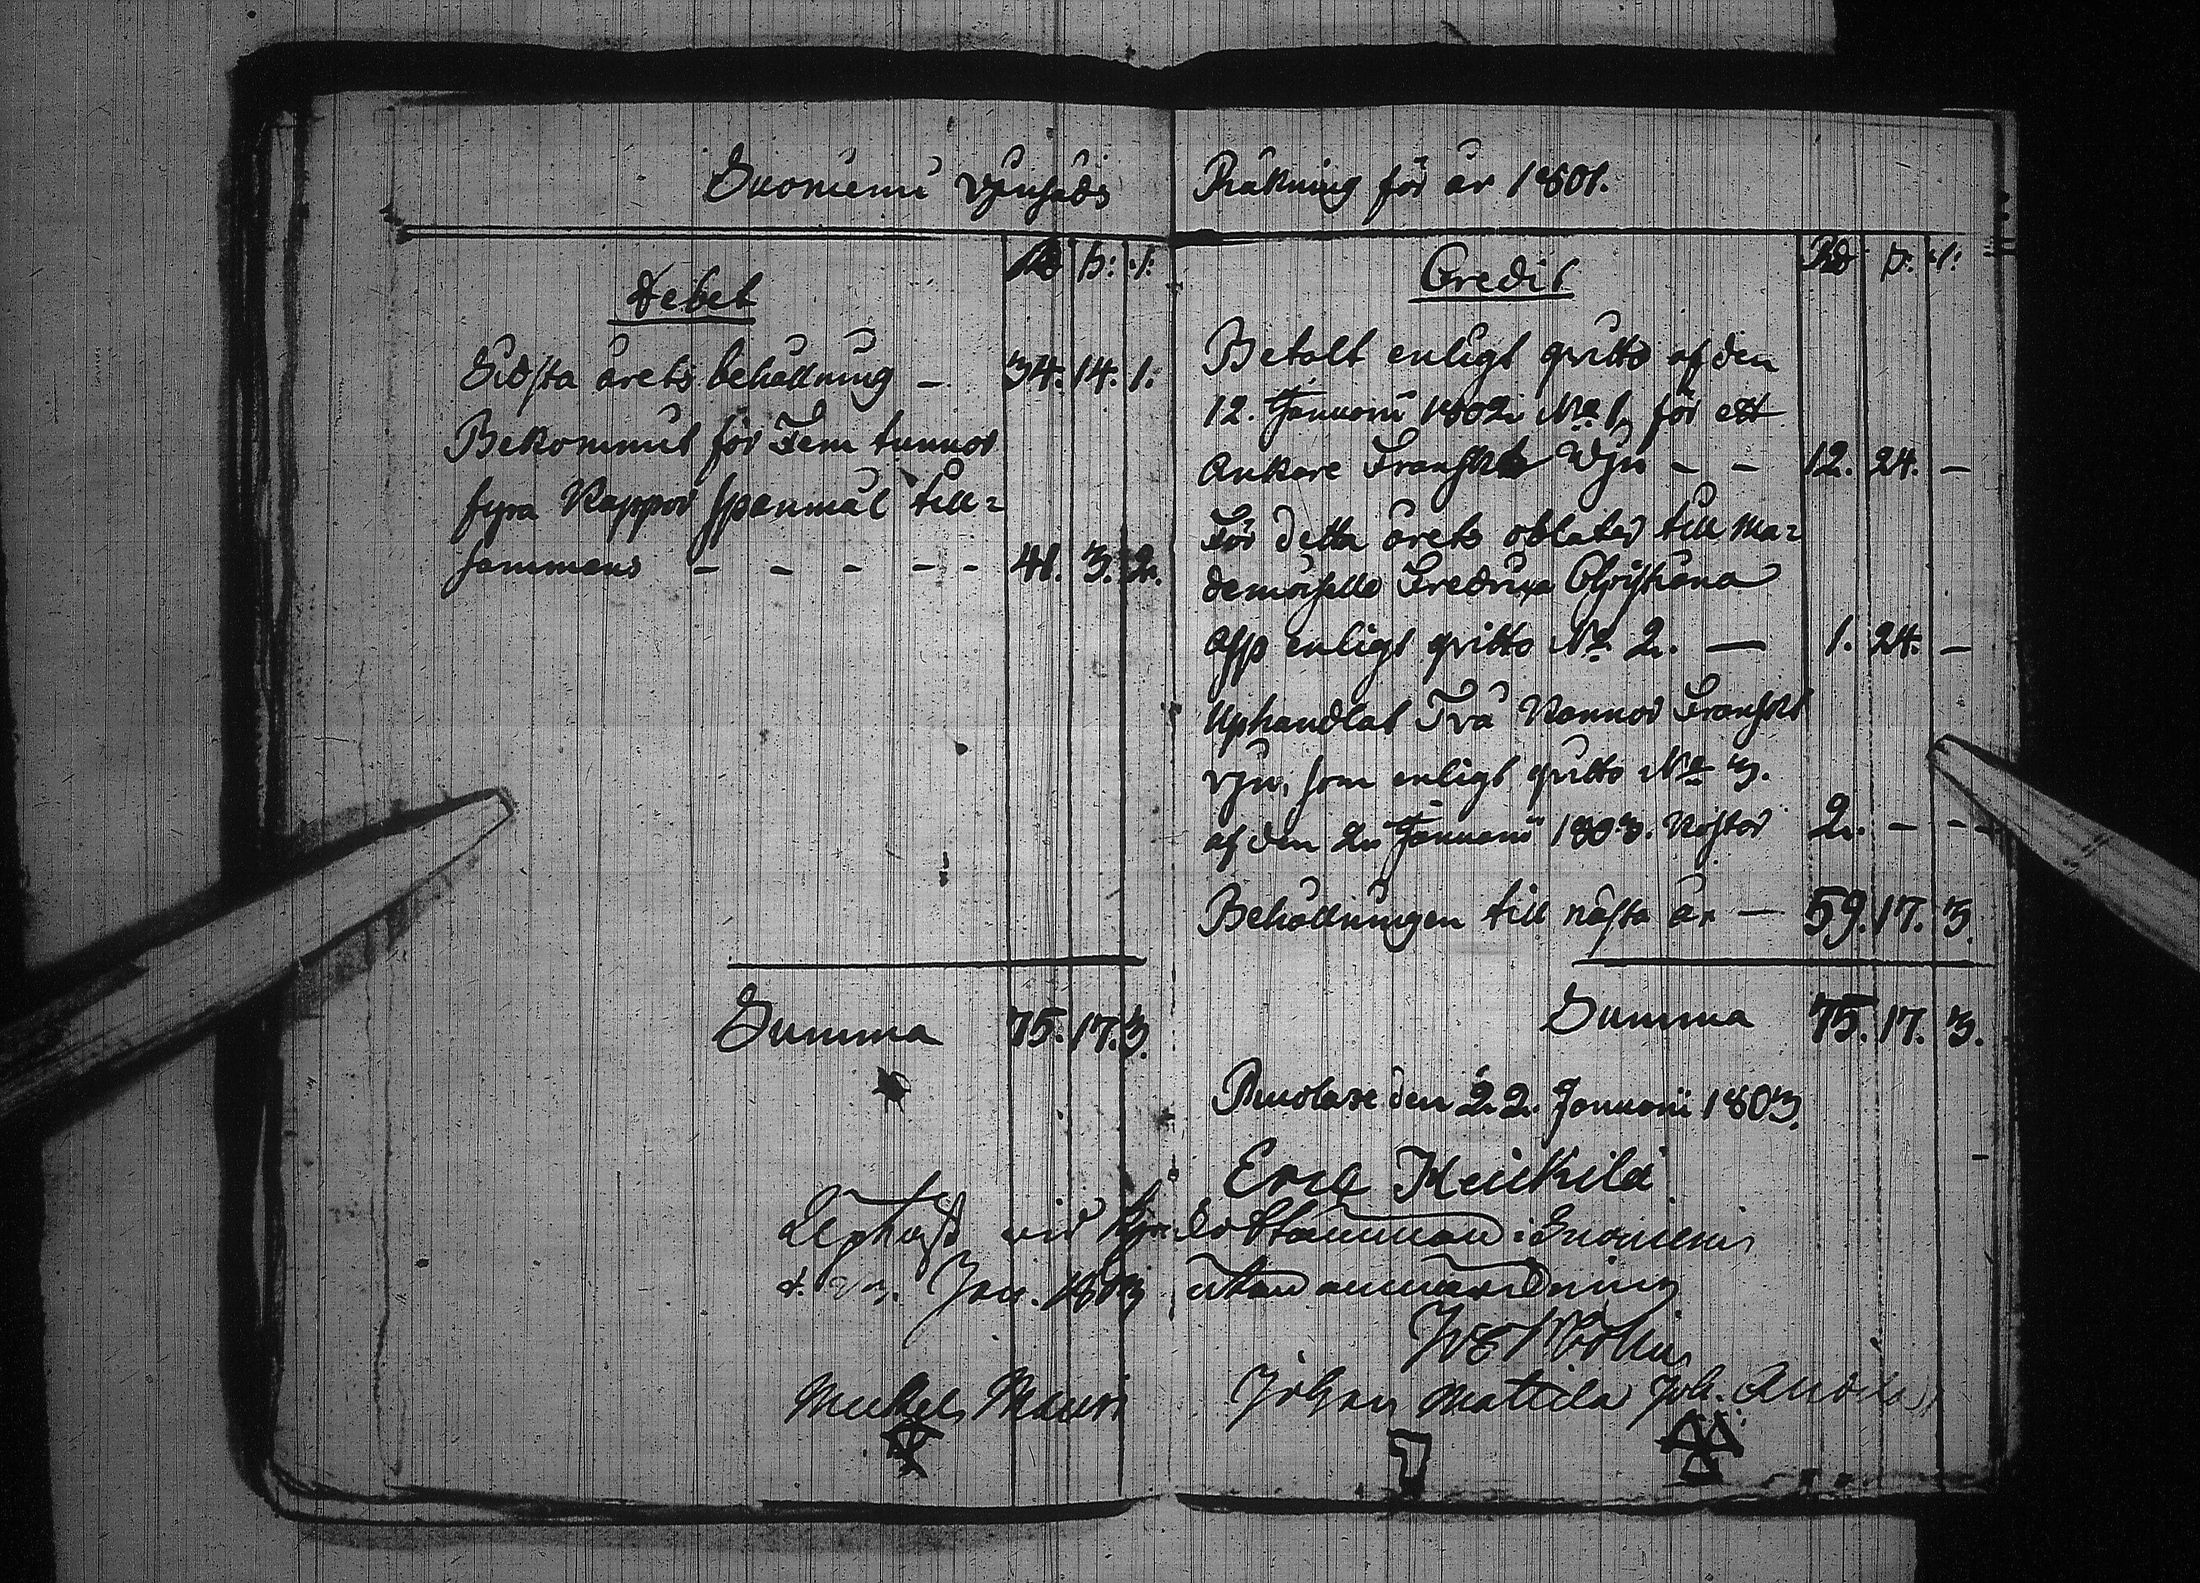 Suoniemi vÿnsäds Räkning för år 1801.
Debet
Rd ß: :/:
Sidsta årets behållning – 34. 14. 1.
Bekommit för Fem tunnor
fyra Kappor spanmål till=
sammans – – – – – 41. 3. 2.
Summa 75. 17. 3.
Credit
Rd ß: :/:
Betalt enligt qvitto af den
12. Januarii 1802. No 1, för ett
Ankare Franskt Vÿn – – 12. 24. –
För detta årets oblater till Ma=
demoiselle Fredrica Christiana
enligt qvitto No 2. — 1. 24. –
Uphandlat Två Kannor Franskt
vÿn, som enligt qvitto No 3.
af den 2. Januarii 1803. kostar 2. – –
Behållningen till nästa år — 59. 17. 3.
Summa 75. 17. 3.
den 22. Januarii 1803.
Eric Heickilä
Upläst vid Kyrkostämman i Suoniemi
d. 23. Jan. 1803 utan anmärkning
Michel Mauri
Johan Mattila Joh.